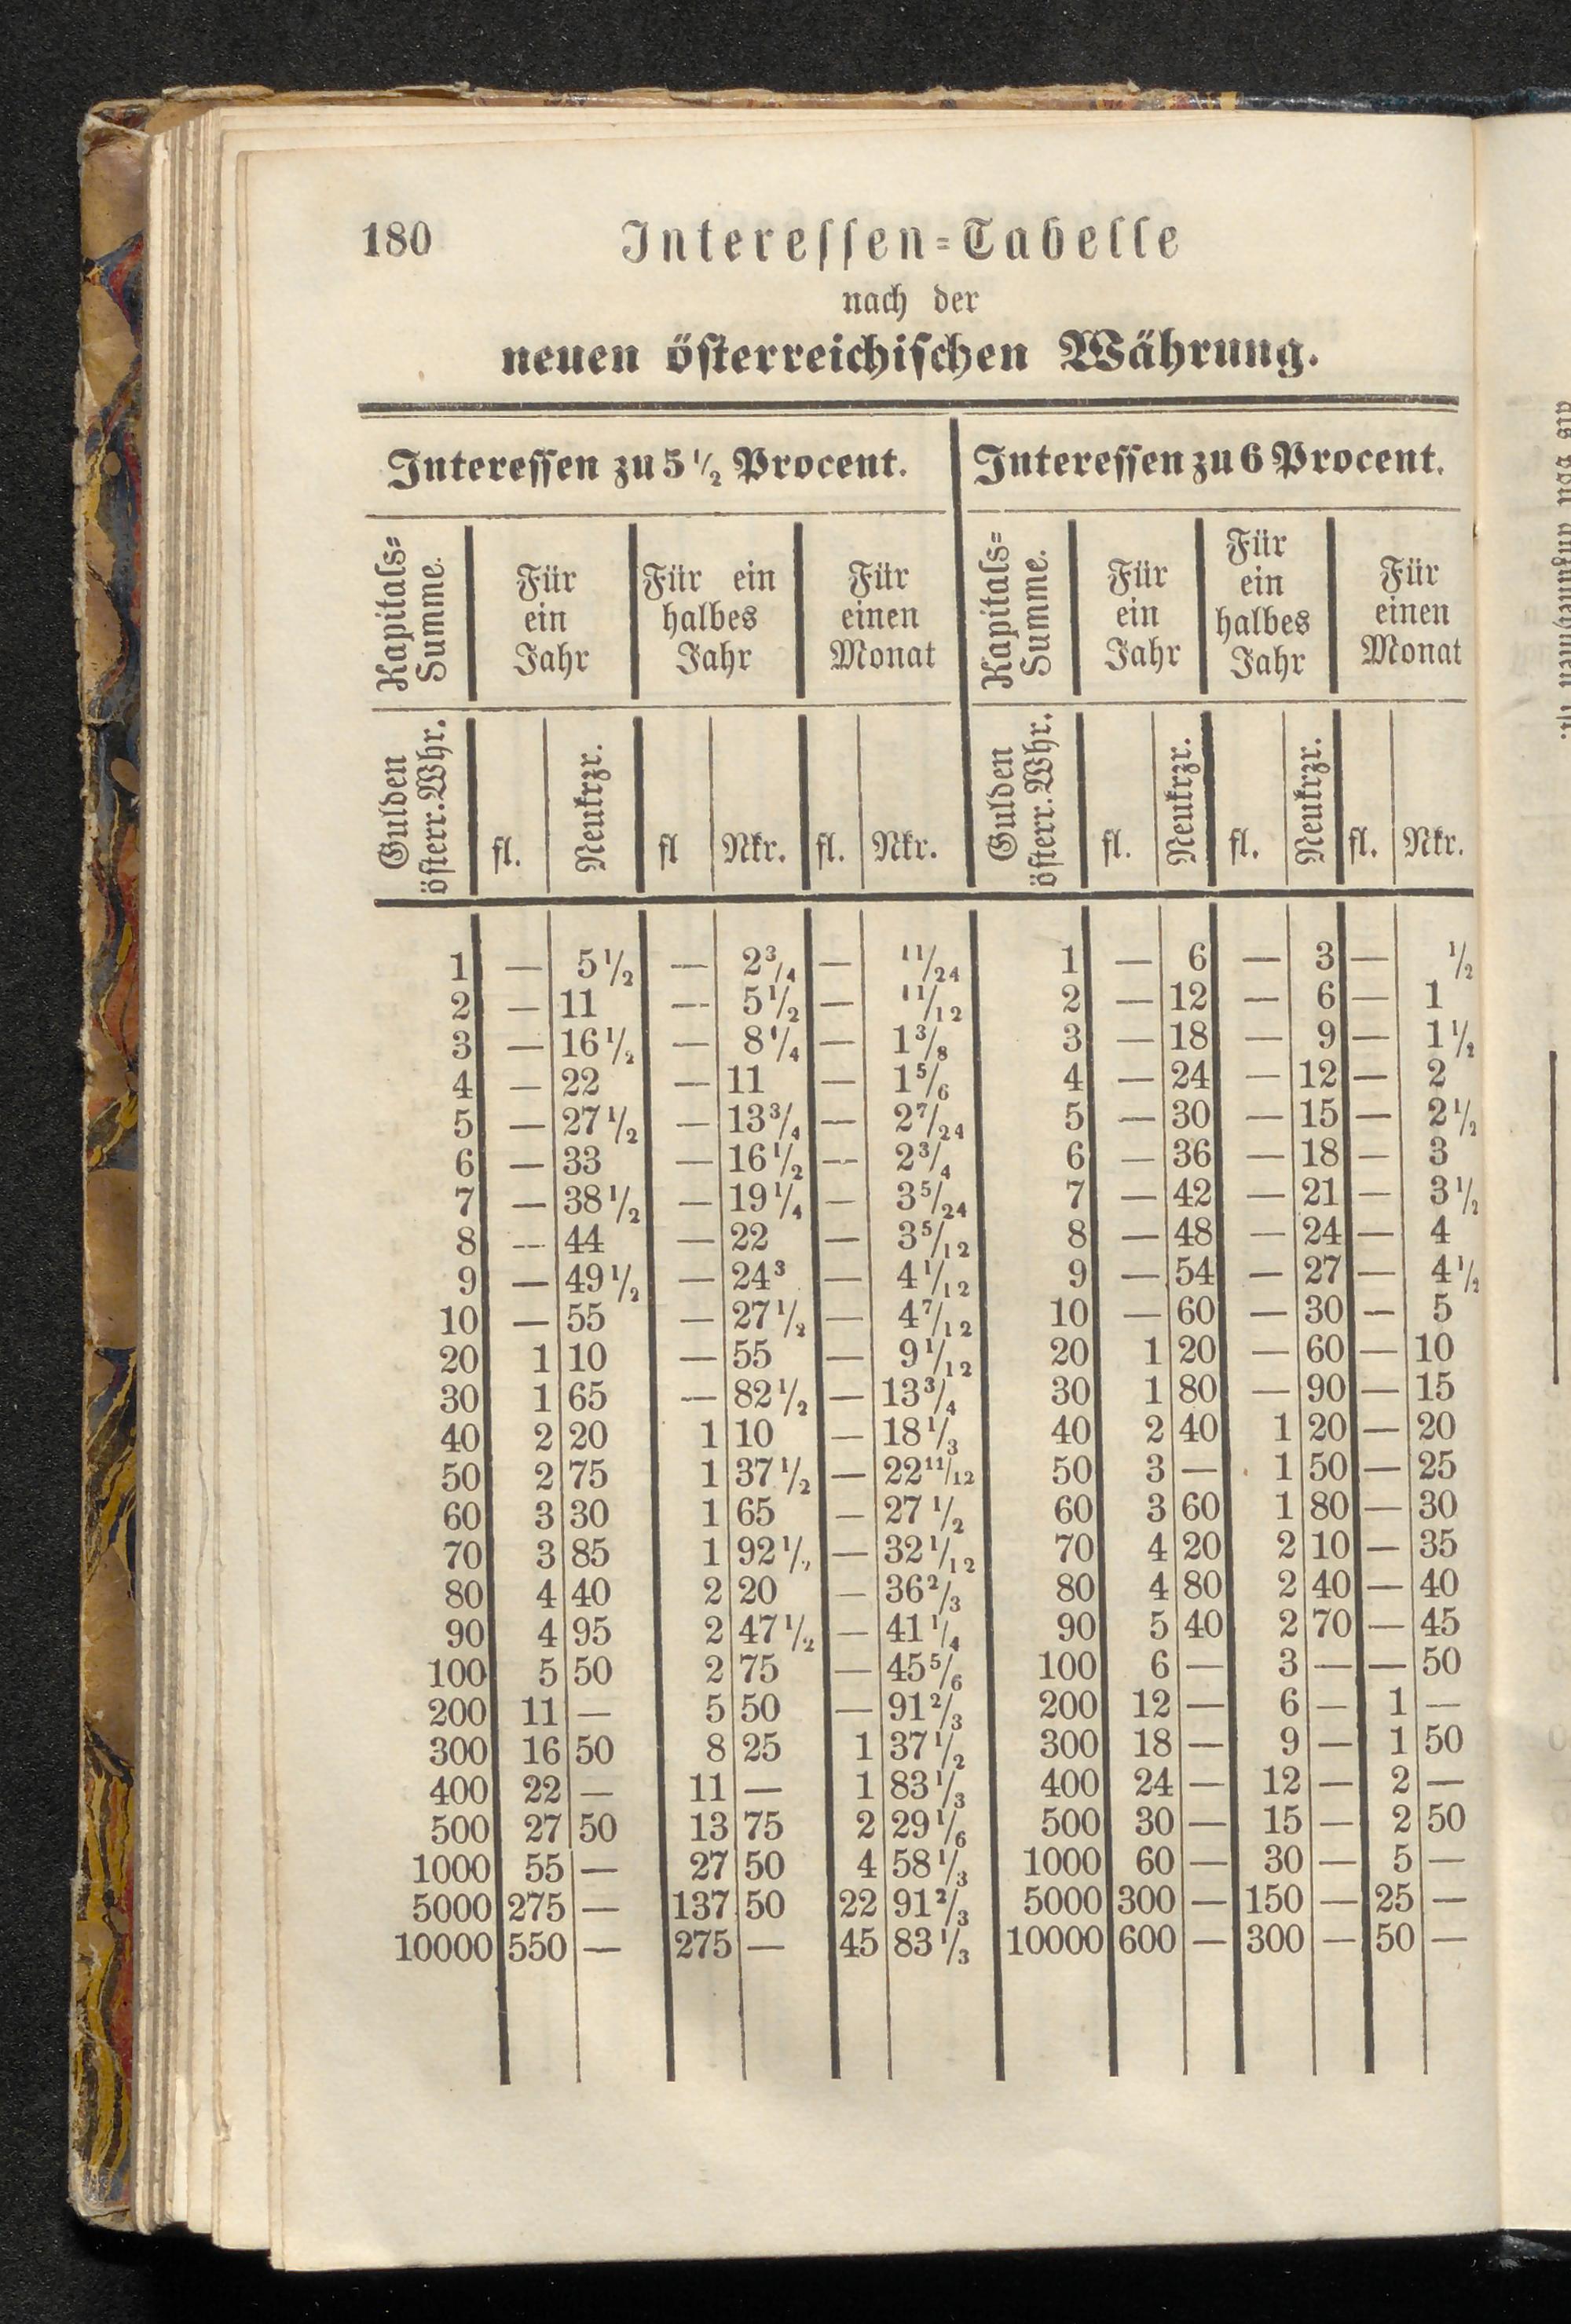 180 Interessen=Tabelle
nach der
neuen österreichischen Währung.
Interessen zu 5 1/2 Procent. Interessen zu 6 Procent.
Kapitals=
Summe.
Für
ein
Jahr
Für ein
halbes
Jahr
Für
einen
Monat
Kapitals=
Summe.
Für
ein
Jahr
Für
ein
halbes
Jahr
Für
einen
Monat
Gulden
österr. Whr.
fl. Neukrzr. fl Nkr. fl. Nkr.
Gulden
österr. Whr.
fl. Neukrzr. fl. Neukrzr. fl. Nkr.
1 — 5 1/2 — 2 3/4 — 11/24 1 — 6 — 3 — 1/2
2 — 11 — 5 1/2 — 11/12 2 — 12 — 6 — 1
3 — 16 1/2 — 8 1/4 — 1 3/8 3 — 18 — 9 — 1 1/2
4 — 22 — 11 — 1 5/6 4 — 24 — 12 — 2
5 — 27 1/2 — 13 3/4 — 2 7/24 5 — 30 — 15 — 2 1/2
6 — 33 — 16 1/2 — 2 3/4 6 — 36 — 18 — 3
7 — 38 1/2 — 19 1/4 — 3 5/24 7 — 42 — 21 — 3 1/2
8 — 44 — 22 — 3 5/12 8 — 48 — 24 — 4
9 — 49 1/2 — 24 3 — 4 1/12 9 — 54 — 27 — 4 1/2
10 — 55 — 27 1/2 — 4 7/12 10 — 60 — 30 — 5
20 1 10 — 55 — 9 1/12 20 1 20 — 60 — 10
30 1 65 — 82 1/2 — 13 3/4 30 1 80 — 90 — 15
40 2 20 1 10 — 18 1/3 40 2 40 1 20 — 20
50 2 75 1 37 1/2 — 22 11/12 50 3 — 1 50 — 25
60 3 30 1 65 — 27 1/2 60 3 60 1 80 — 30
70 3 85 1 92 1/2 — 32 1/12 70 4 20 2 10 — 35
80 4 40 2 20 — 36 2/3 80 4 80 2 40 — 40
90 4 95 2 47 1/2 — 41 1/4 90 5 40 2 70 — 45
100 5 50 2 75 — 45 5/6 100 6 — 3 — — 50
200 11 — 5 50 — 91 2/3 200 12 — 6 — 1 —
300 16 50 8 25 1 37 1/2 300 18 — 9 — 1 50
400 22 — 11 — 1 83 1/3 400 24 — 12 — 2 —
500 27 50 13 75 2 29 1/6 500 30 — 15 — 2 50
1000 55 — 27 50 4 58 1/3 1000 60 — 30 — 5 —
5000 275 — 137 50 22 91 2/3 5000 300 — 150 — 25 —
10000 550 — 275 — 45 83 1/3 10000 600 — 300 — 50 —